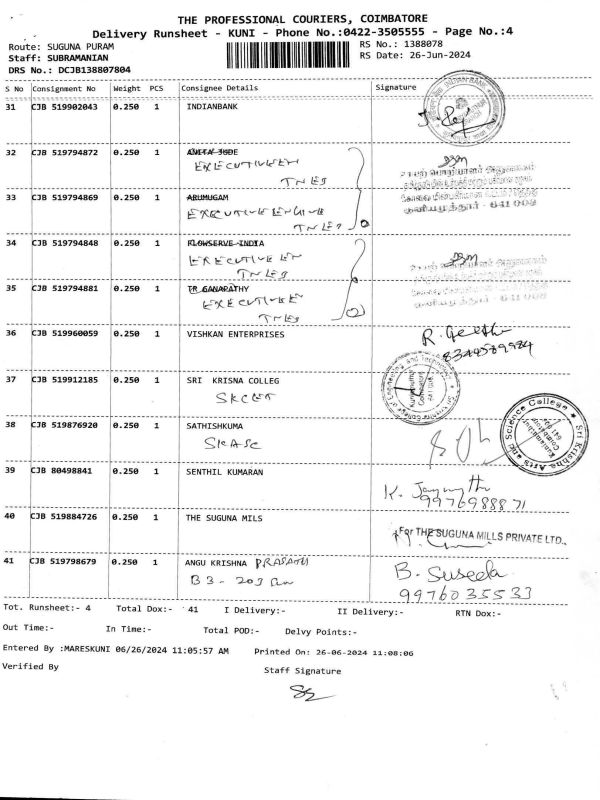 THE PROFESSIONAL COURIERS, COIMBATORE
Delivery Runsheet - KUNI - Phone No.:0422-3505555 - Page No.:4
Route: SUGUNA PURAM RS No.: 1388078
Staff: SUBRAMANIAN RS Date: 26-Jun-2024
DRS No.: DCJB138807804
S No Consignment No Weight PCS Consignee Details Signature
31 CJB 519902043 0.250 1 INDIANBANK
32 CJB 519794872 0.250 1 ANITA JUDE
EXECUTIVE EN
TNEB
33 CJB 519794869 0.250 1 ARUMUGAM
EXECUTIVE ENGINE
TNEB
34 CJB 519794848 0.250 1 FLOWSERVE INDIA
EXECUTIVE EN
TNEB
35 CJB 519794881 0.250 1 TR GANAPATHY
EXECUTIVE E
TNEB
36 CJB 519960059 0.250 1 VISHKAN ENTERPRISES R. Geetha
37 CJB 519912185 0.250 1 SRI KRISNA COLLEG
SKCET
38 CJB 519876920 0.250 1 SATHISHKUMA
SKASC
Sri Krishna Arts and Science College
39 CJB 80498841 0.250 1 SENTHIL KUMARAN
K. Jayanthi
9976988871
40 CJB 519884726 0.250 1 THE SUGUNA MILS
For THE SUGUNA MILLS PRIVATE LTD.,
41 CJB 519798679 0.250 1 ANGU KRISHNA PRASATH B. Suseela
B3 - 203 9976035533
Tot. Runsheet:- 4 Total Dox:- 41 I Delivery:- II Delivery:- RTN Dox:-
Out Time:- In Time:- Total POD:- Delvy Points:-
Entered By :MARESKUNI 06/26/2024 11:05:57 AM Printed On: 26-06-2024 11:08:06
Verified By Staff Signature